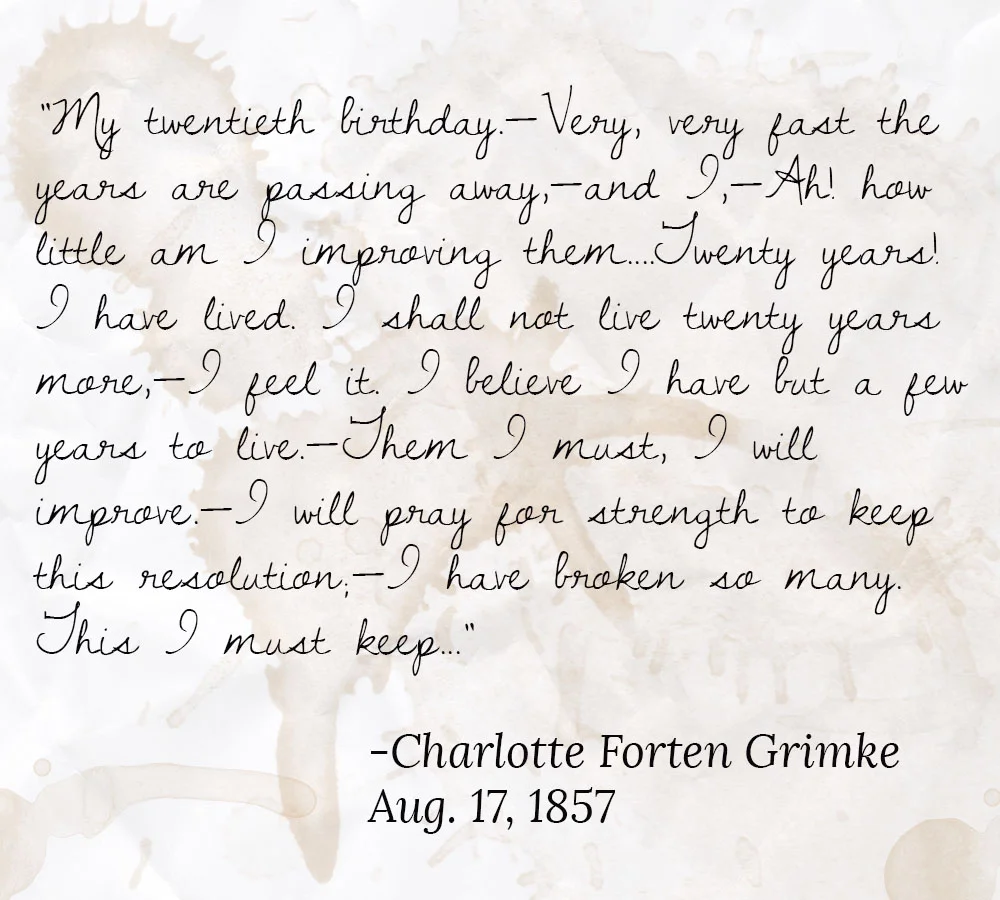 "My twentieth birthday.—Very, very fast the
years are passing away,—and I,—Ah! how
little am I improving them....Twenty years!
I have lived. I shall not live twenty years
more,—I feel it. I believe I have but a few
years to live.—Them I must, I will
improve.—I will pray for strength to keep
this resolution;—I have broken so many.
This I must keep..."
-Charlotte Forten Grimke
Aug. 17, 1857